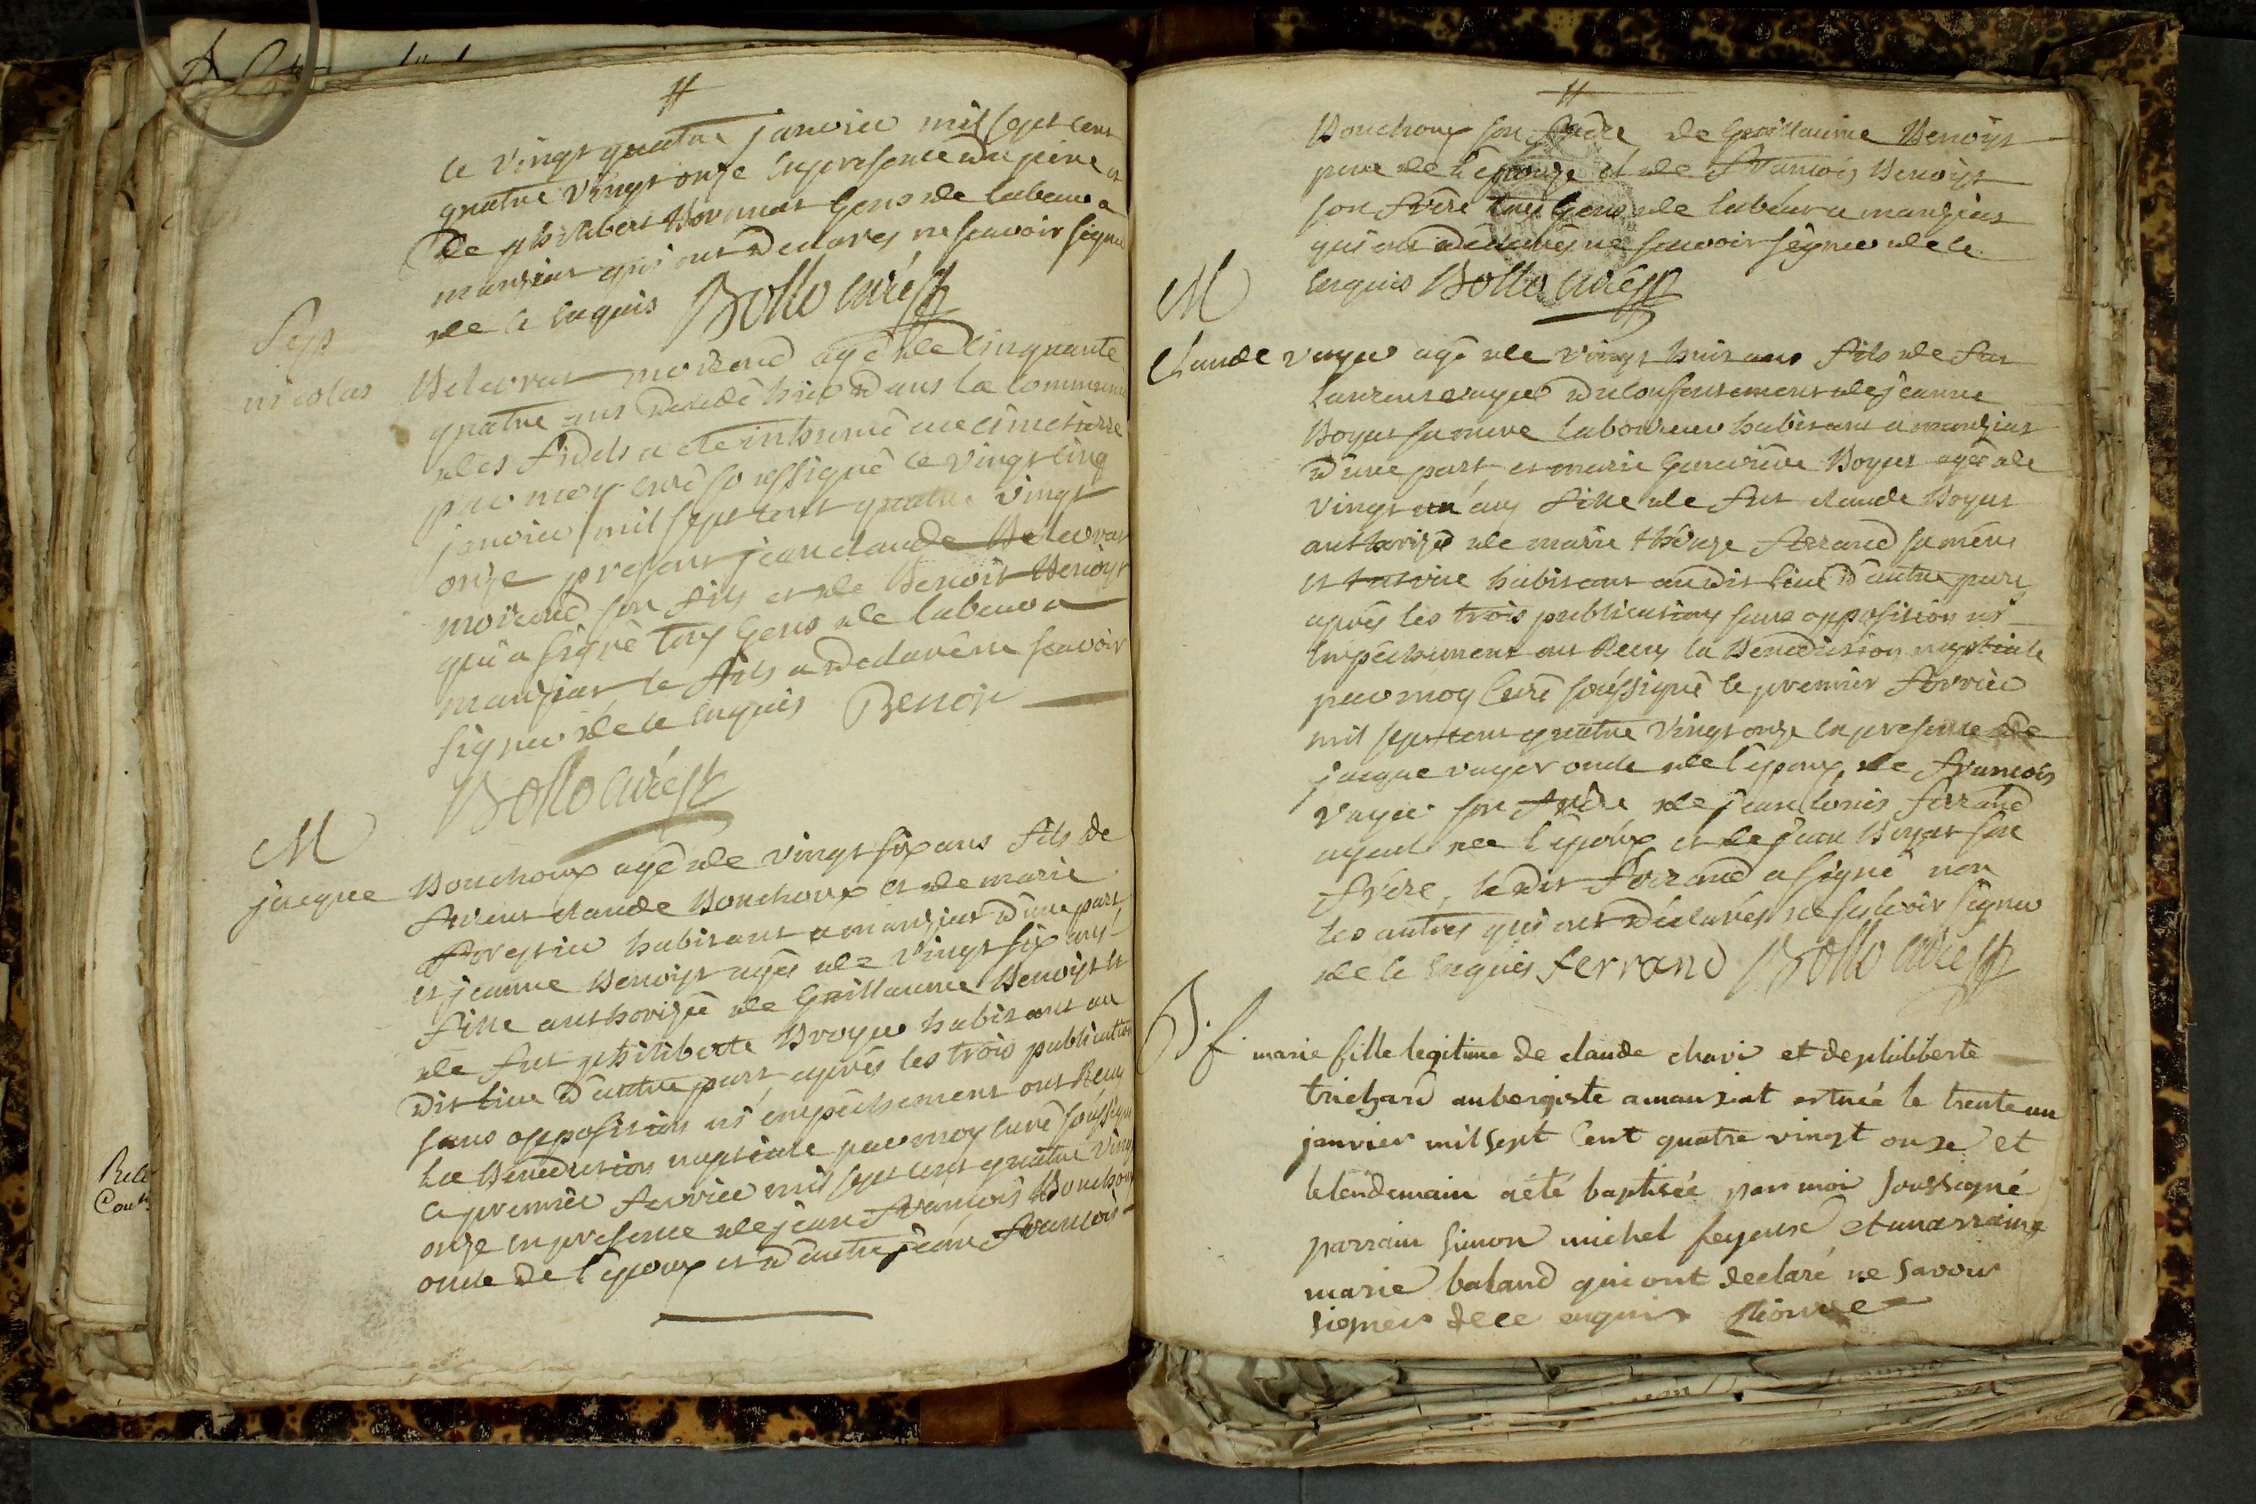 le vingt quatre janvier mil sept cent
quatre vingt onze en presence du pere et
de philibert Bornuat gens de labeur a
manziat qui ont declarés ne scavoir signer
de ce enquis Bollo curé
Sep
nicolas Delacras moirand agé de cinquante
quatre ans decedé hier dans la communion
des fidels a ete inhumé au cimetierre
par moy curé soussigné le vingt cinq
janvier mil sept cent quatre vingt
onze present jean claude
moirand son fils et de Benoit Benoist
qui a signé tous gens de labeur a
manziat le fils a declaré ne scavoir
signer de ce enquis Benoit
Bollo curé
M
jacque Bouchoux agé de vingt six ans fils de
claude Bouchoux et de marie
forestier habitant a manziat d'une part
et jeanne Benoist agée de vingt six ans
fille authorizée de Guillaume Benoist et
de fut philiberte Broyer habitant au
dit lieu d'autre part après les trois publications
sans opposition ni empêchement ont Reçu
La Benediction nuptiale par moy curé soussigné
le premier fevrier mil sept cent quatre vingt
onze en presence de jean francois Bouchoux
oncle de l'epoux et d'autre jean francois
Bouchoux son frère de Guillaume Benoist
pere de l'epouze et de francois Benoist
son frère tous gens de labeur a manziat
qui ont déclarés ne scavoir signer de ce
enquis Bollo curé
M
Claude vayer agé de vingt huit ans fils de fut
Laurent vayer du consentement de jeanne
Boyat sa mere laboureur habitant a manziat
d'une part et marie Genevieve Boyat agée de
vingt un ans fille de fut claude Boyat
authorizée de marie thérèze ferrand sa mère
et tutrice habitant audit lieu d'autre part
après les trois publications sans opposition ni
Empêchement ont Reçu la Benediction nuptiale
par moy Curé soussigné le premier fevrier
mil sept cent quatre vingt onze en presence de
jacque vayer oncle de l'epoux de francois
vayer son frère de jean louis ferrand
ayeul de l'epouse et de jean Boyat son
frère, le dit ferrand a signé non
les autres qui ont déclarés ne scavoir signer
de ce enquis ferrand Bollo curé
B. f. marie fille legitime de claude chavi et de philiberte
trichard aubergiste a manziat est née le trente un
janvier mil sept Cent quatre vingt onze et
le lendemain a été baptisée par moi soussigné
parrain simon michel feyeux et marraine
marie baland qui ont declaré ne savoir
signer de ce enquis